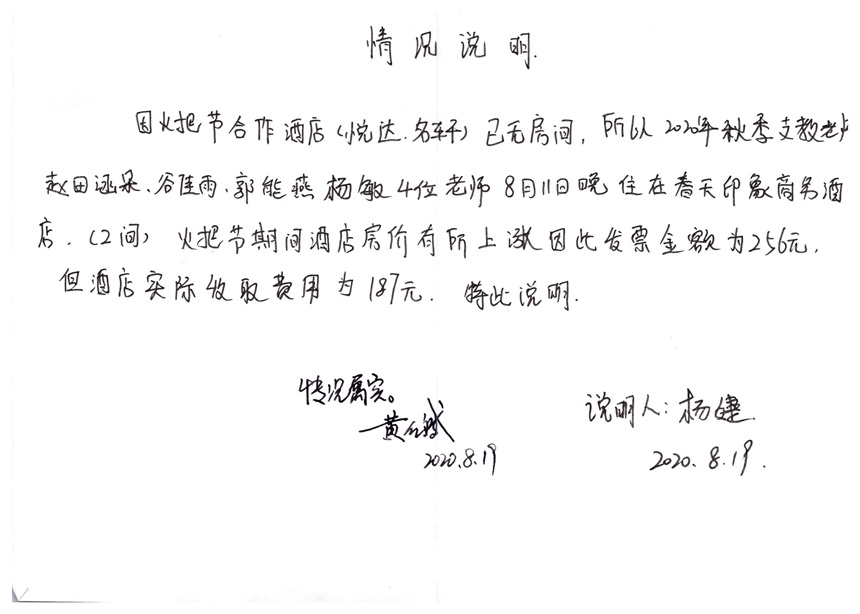 情况说明.
因火把节合作酒店(悦达.名轩)已无房间,所以2020年秋季支教老
赵田涵呆、谷佳雨、郭能燕 杨敏4位老师8月11日晚住在春天印象商务酒
店.(2间)火把节期间酒店房价有所上涨因此发票金额为256元,
但酒店实际收取费用为187元. 特此说明.
情况属实。
说明人:杨健.
黄
2020.8.19
2020.8.19.